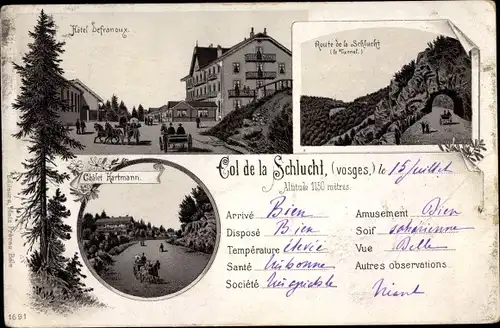 Hôtel Defranoux.
Route de la Schlucht
(le Tunnel.)
Châlet Hartmann.
Col de la Schlucht, (vosges,) le 15 Juillet
Altitude 1150 mètres.
Arrivé Bien
Amusement Bien
Disposé Bien
Soif saharienne
Température élevée
Vue Belle
Santé
Autres observations
Société
Néant
1691